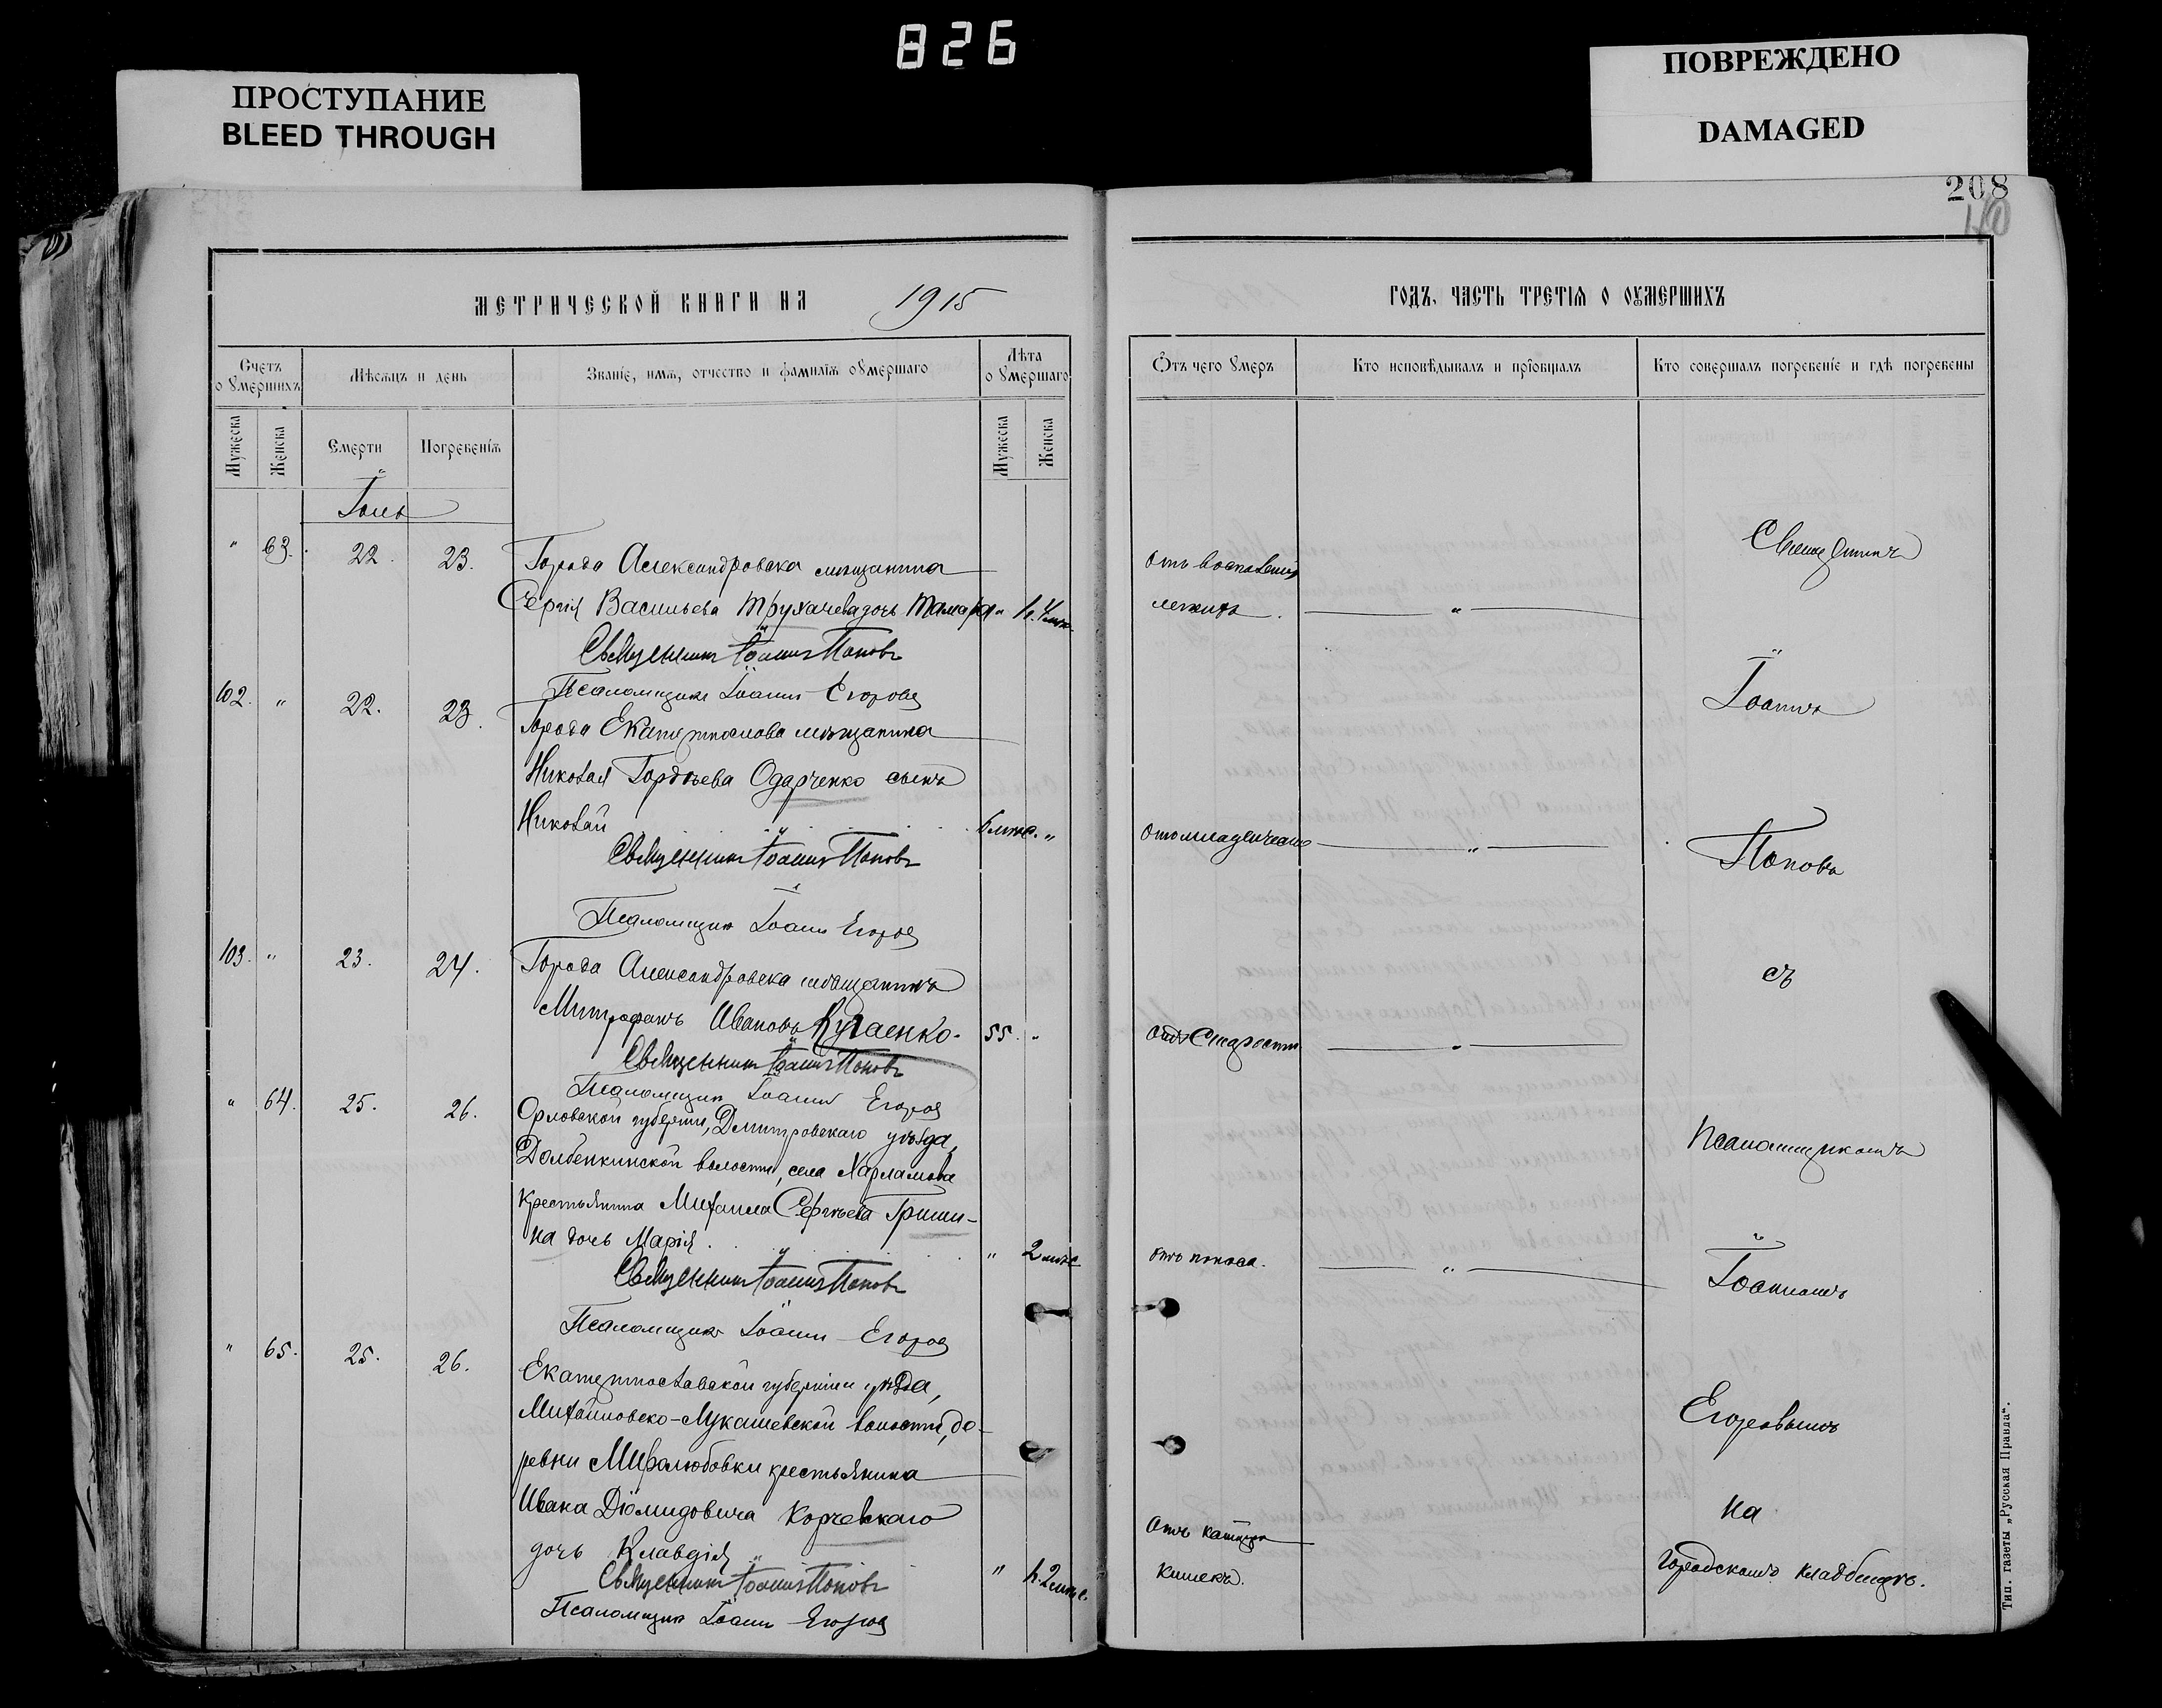 826
ПРОСТУПАНИЕ
BLEED THROUGH
ПОВРЕЖДЕНО
DAMAGED
208
МЕТРИЧЕСКОЙ КНИГИ НА 1915
Счетъ о умершихъ
Мѣсяцъ и день
Званїе, имя, отчество и фамилїя умершаго
Лѣта о умершаго
Мужеска
Женска
Смерти
Погребенїя
Мужеска
Женска
Іюль
" 63. 22. 23. Города Александровска мѣщанина
Сергія Васильева Трухачева дочь Тамара "
Священникъ Іоаннъ Поповъ
Псаломщикъ Іоаннъ Егоровъ
102. " 22. 23. Города Екатеринослава мѣщанина
Николая Гордѣева Одарченко сынъ
Николай 6 мѣс. "
Священникъ Іоаннъ Поповъ
Псаломщикъ Іоаннъ Егоровъ
103. " 23. 24. Города Александровска мѣщанинъ
Митрофанъ Ивановъ Кугаенко. 55. "
Священникъ Іоаннъ Поповъ
Псаломщикъ Іоаннъ Егоровъ
" 64. 25. 26. Орловской губерніи, Дмитровскаго уѣзда,
Долбенкинской волости, села Харламова
крестьянина Михаила Сергѣева Гриши-
на дочь Марія. " 2 мѣс
Священникъ Іоаннъ Поповъ
Псаломщикъ Іоаннъ Егоровъ
" 65. 25. 26. Екатеринославской губерніи уѣзда,
Михайловско-Лукашевской волости, де-
ревни Миролюбовки крестьянина
Ивана Діомидовича Корчевскаго
дочь Клавдія " 2 мѣс.
Священникъ Іоаннъ Поповъ
Псаломщикъ Іоаннъ Егоровъ
ГОДЪ, ЧАСТЬ ТРЕТЇЯ О ОУМЕРШИХЪ
Отъ чего умеръ
Кто исповѣдывалъ и прїобщалъ
Кто совершалъ погребенїе и гдѣ погребены
отъ воспаленія
легкихъ. "
отъ младенческ "
отъ старости "
отъ поноса. "
отъ катарра
кишекъ.
Священникъ
Іоаннъ
Поповъ
съ
псаломщикомъ
Іоанномъ
Егоровымъ
на
городскомъ кладбищѣ.
Тип. газеты „Русская Правда“.